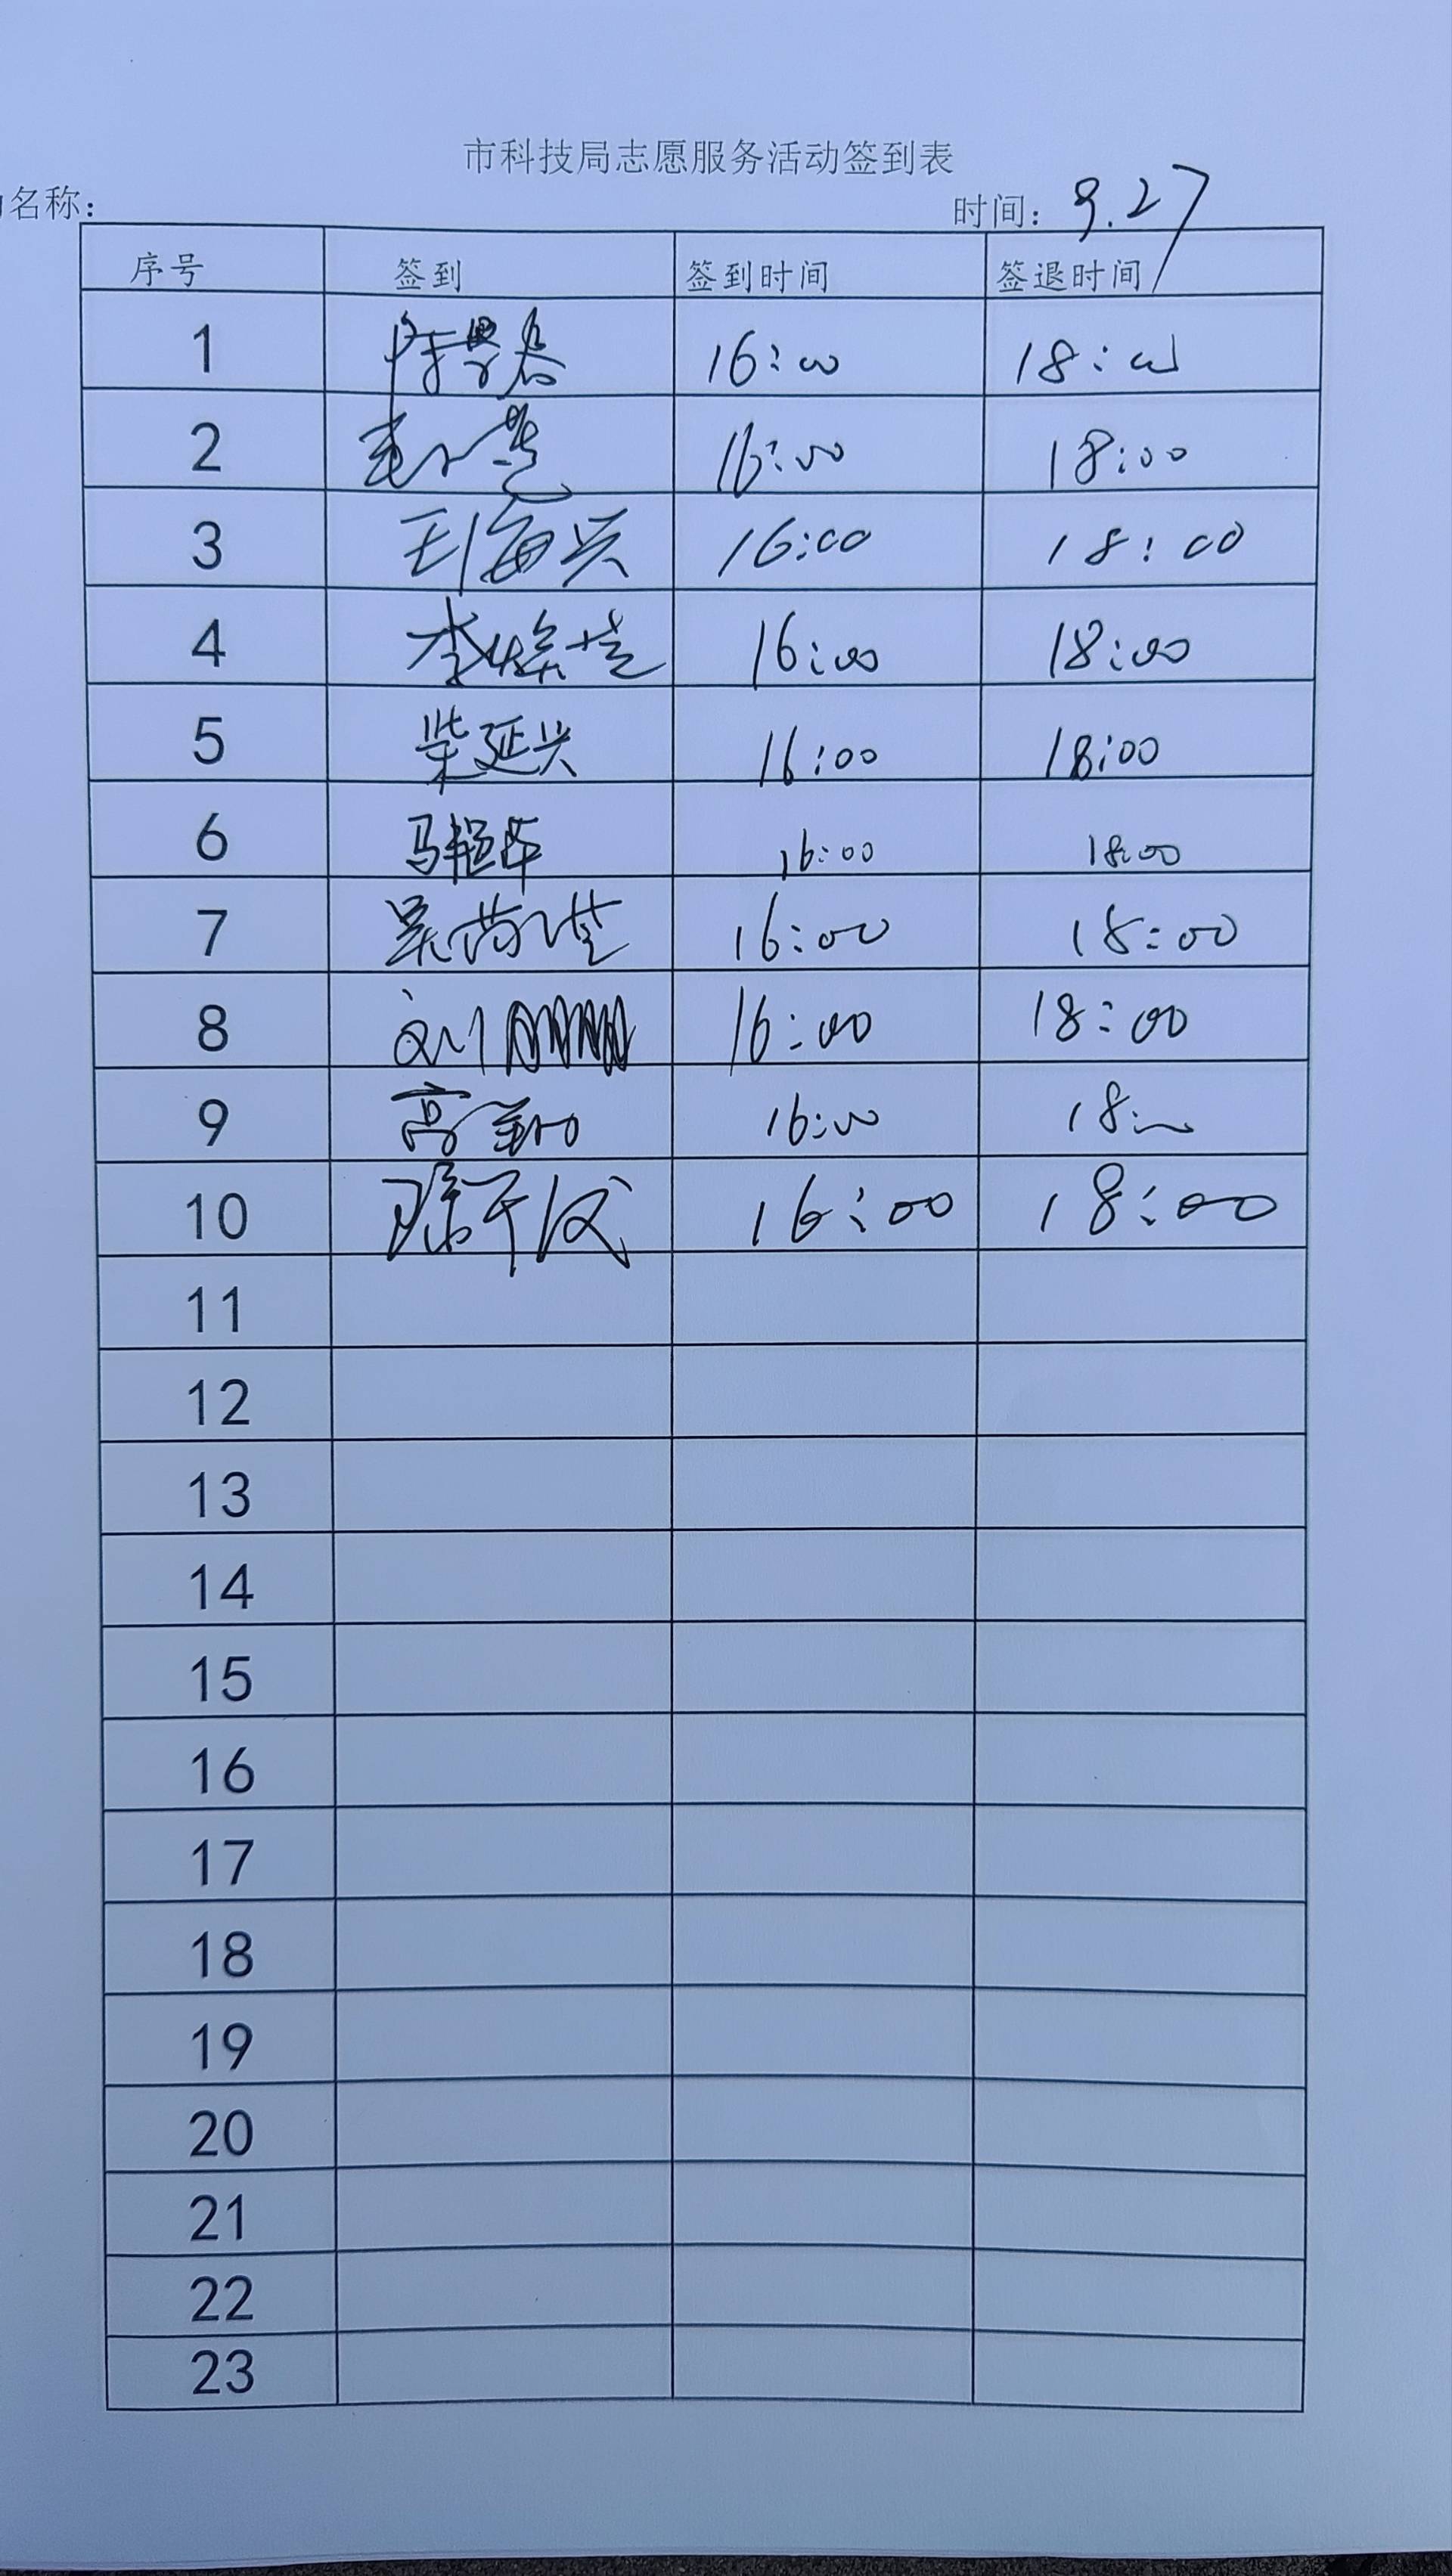 市科技局志愿服务活动签到表
名称： 时间：9.27
序号 签到 签到时间 签退时间
1 16:00 18:00
2 16:00 18:00
3 王海兴 16:00 18:00
4 李 16:00 18:00
5 柴延兴 16:00 18:00
6 马艳华 16:00 18:00
7 吴 16:00 18:00
8 刘 16:00 18:00
9 高 16:00 18:00
10 16:00 18:00
11
12
13
14
15
16
17
18
19
20
21
22
23